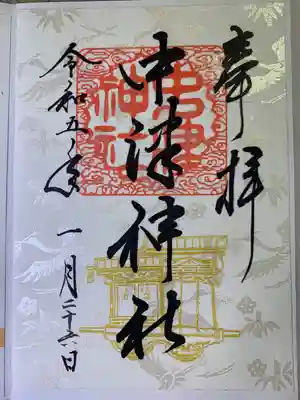 奉拝
中津神社
令和五年 一月二十六日